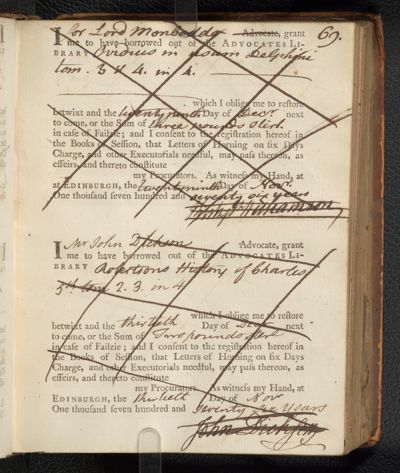 69.
I for Lord Monboddo Advocate, grant
me to have borrowed out of the ADVOCATES LI-
BRARY Ovidius in usum Delphini
tom. 3 & 4. in 4.
which I oblige me to restore
betwixt and the twenty ninth Day of Decr. next
to come, or the Sum of three pounds Sterl.
in case of Failzie; and I consent to the registration hereof in
the Books of Session, that Letters of Horning on six Days
Charge, and other Executorials needful, may pass thereon, as
effeirs, and thereto constitute
my Procurators. As witness my Hand, at
at EDINBURGH, the twenty ninth Day of Novr.
One thousand seven hundred and seventy six years
Williamson
I Mr John Dickson Advocate, grant
me to have borrowed out of the ADVOCATES LI-
BRARY Robertsons History of Charles
5th tom 2. 3. in 4
which I oblige me to restore
betwixt and the thirtieth Day of next
to come, or the Sum of Two pounds Sterl
in case of Failzie; and I consent to the registration hereof in
the Books of Session, that Letters of Horning on six Days
Charge, and other Executorials needful, may pass thereon, as
effeirs, and thereto constitute
my Procurators. As witness my Hand, at
EDINBURGH, the thirtieth Day of Novr
One thousand seven hundred and Seventy Six Years
John Dickson